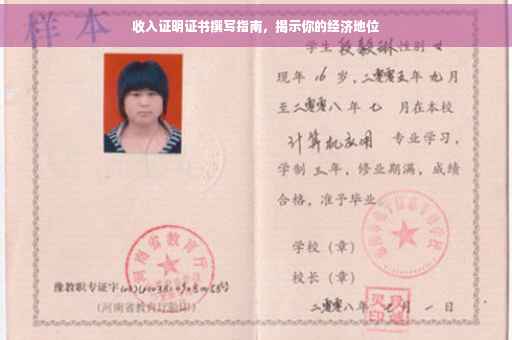 收入证明证书撰写指南，揭示你的经济地位
样本
学生 段毅琳 性别 女
现年 16 岁，二零零五年 九 月
至二零零八 年 七 月在本校
计算机应用 专业学习，
学制 三 年，修业期满，成绩
合格，准予毕业
学校（章）
校长（章）
二零零八年 七 月 一 日
河南省教育厅
豫教职专证字
（河南省教育厅验印）